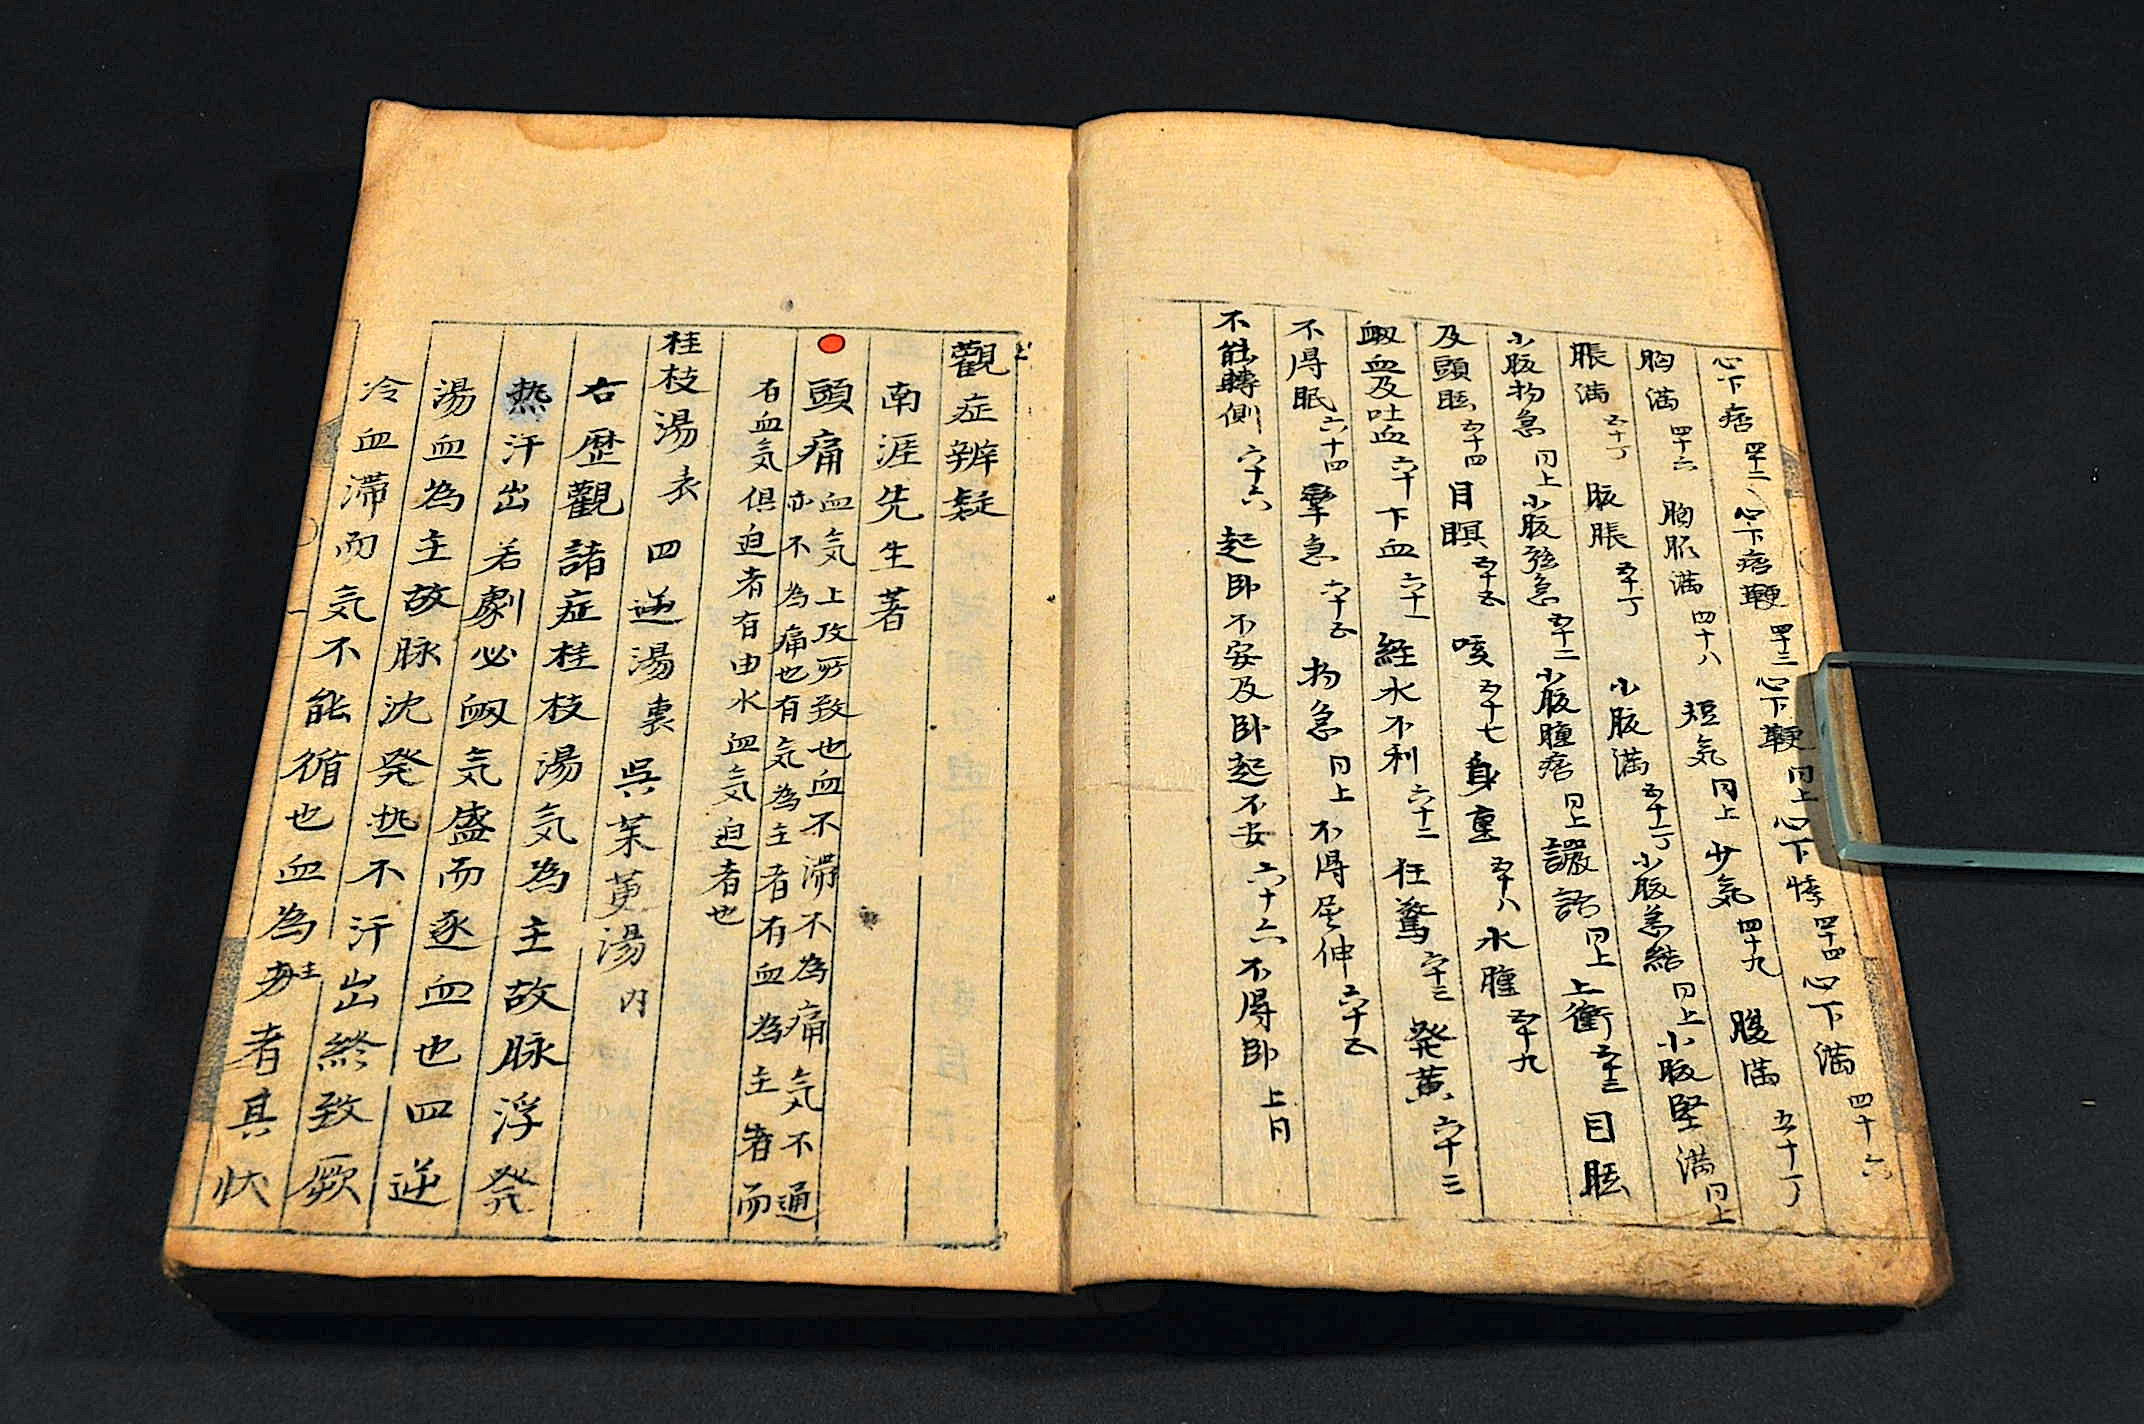 心下痞 四十二 心下痞鞕 四十三 心下鞕 同上 心下悸 四十四 心下満 四十六
胸満 四十六 胸脇満 四十八 短気 同上 少気 四十九 腹満 五十丁
脹満 五十丁 腹脹 五十丁 小腹満 五十一丁 小腹急結 同上 小腹堅満 同上
小腹拘急 同上 小腹弦急 五十二 小腹腫痞 同上 讝語 同上 上衝 五十三 目眩
及頭眩 五十四 目瞑 五十五 咳 五十七 身重 五十八 水腫 五十九
衄血及吐血 六十 下血 六十一 経水不利 六十二 狂驚 六十三 発黄 六十三
不得眠 六十四 攣急 六十五 拘急 同上 不得屈伸 六十五
不能轉側 六十六 起卧不安及卧起不安 六十六 不得卧 上同
觀症辨疑
南涯先生著
頭痛 血気上攻所致也血不滞不為痛気不通
亦不為痛也有気為主者有血為主者而
有血気倶迫者有由水血気迫者也
桂枝湯 表 四逆湯 裏 呉茱萸湯 内
右歴觀諸症桂枝湯気為主故脉浮発
热汗出若劇必衄気盛而逐血也四逆
湯血為主故脉沈発热不汗出終致厥
冷血滞而気不能循也血為主者其状